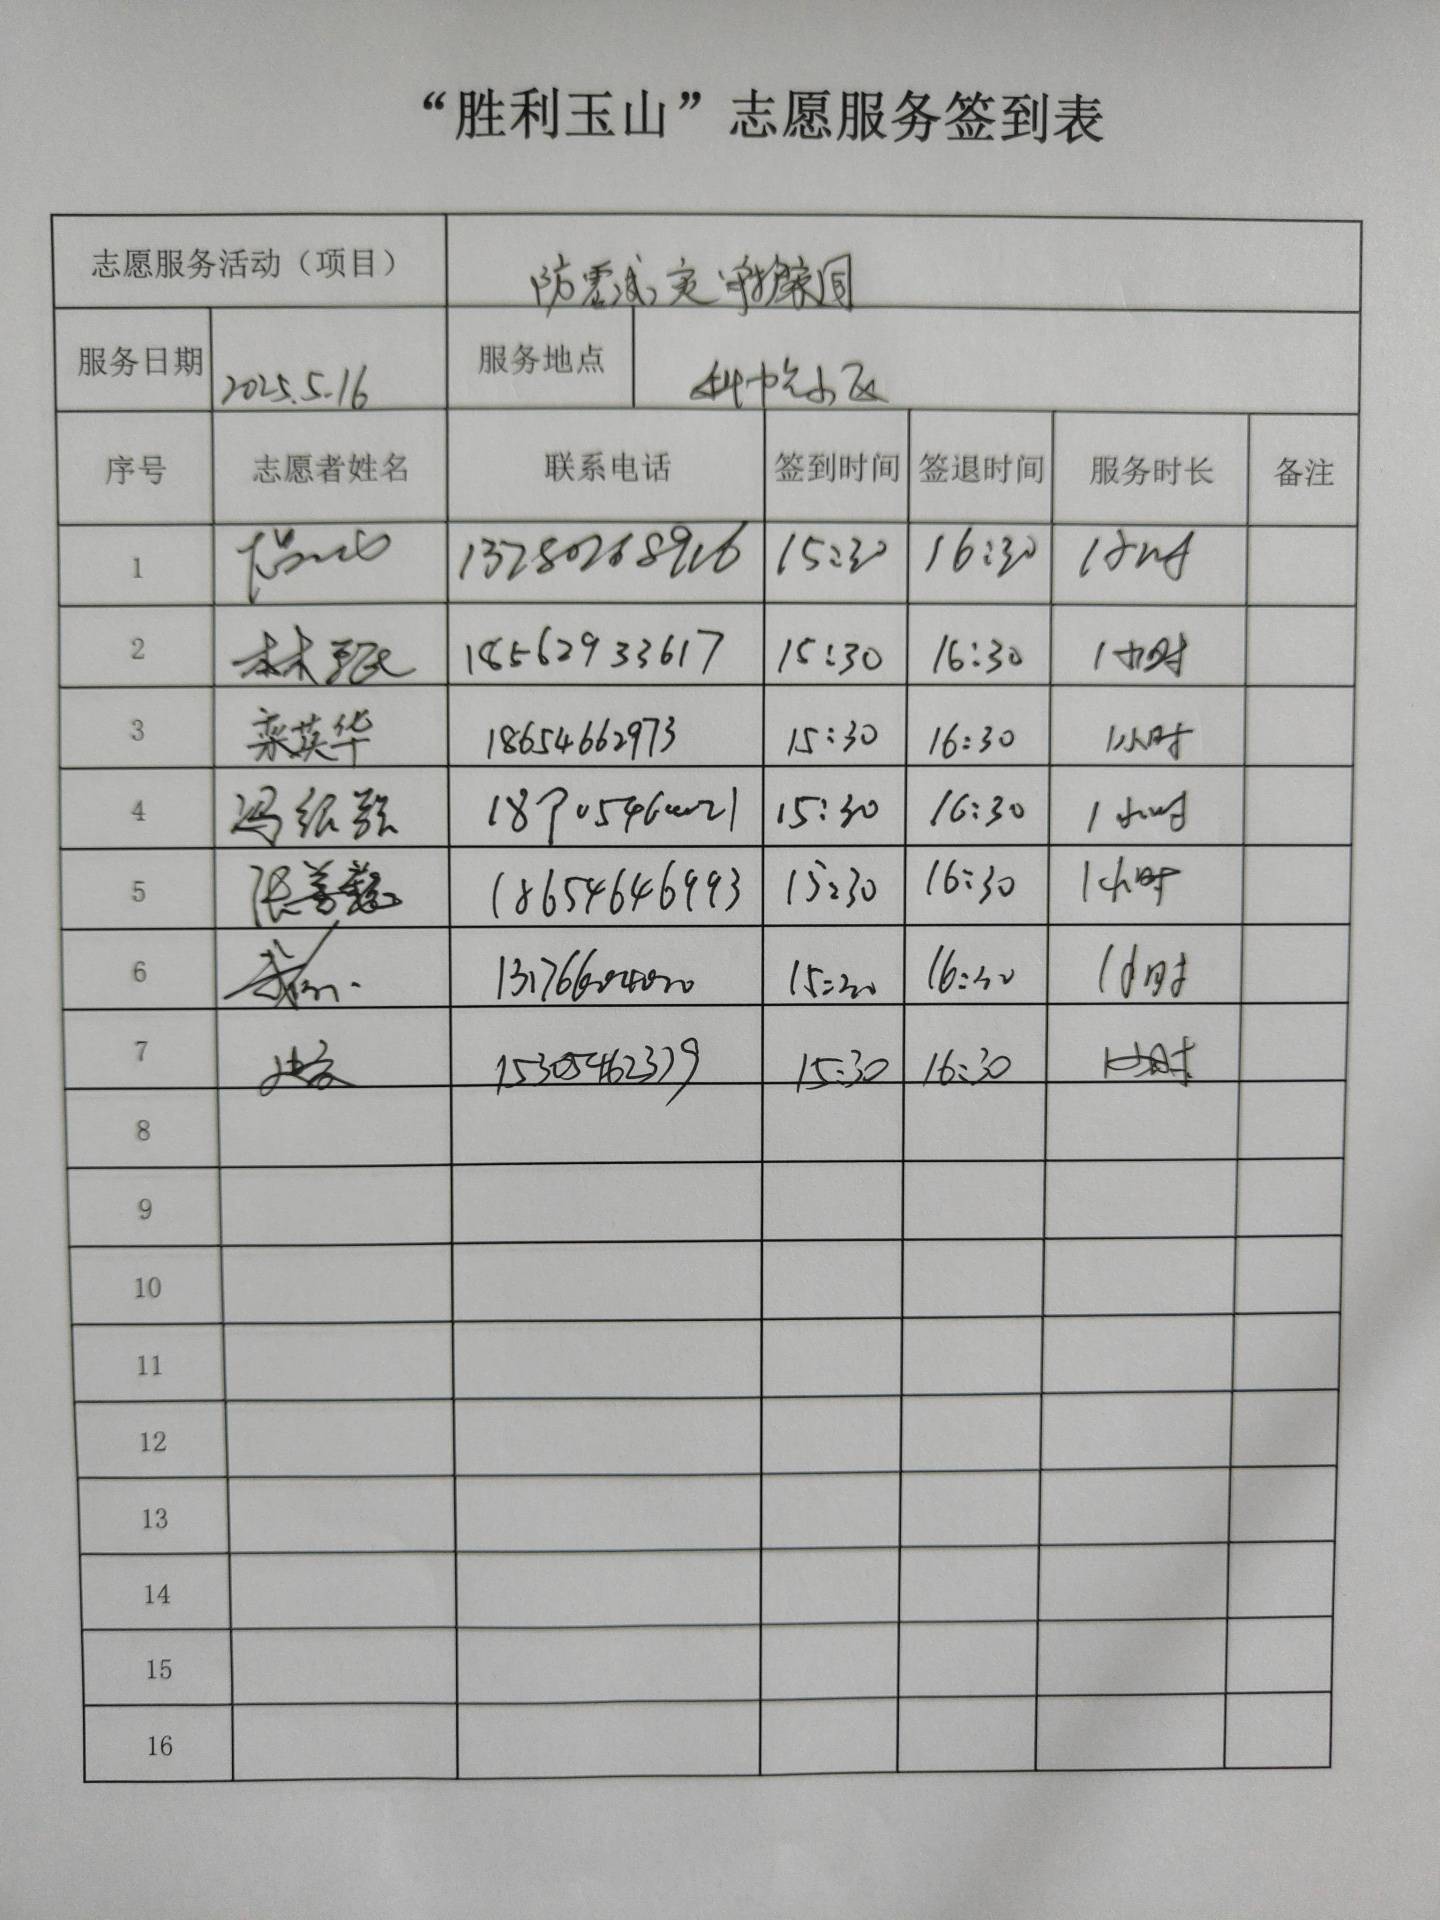 “胜利玉山”志愿服务签到表
志愿服务活动（项目） 防震减灾 守护家园
服务日期 2025.5.16 服务地点 小区
序号 志愿者姓名 联系电话 签到时间 签退时间 服务时长 备注
1 13780268916 15:30 16:30 1小时
2 林 18562933617 15:30 16:30 1小时
3 栾英华 18654662973 15:30 16:30 1小时
4 冯 15:30 16:30 1小时
5 张善 18654646993 15:30 16:30 1小时
6 15:30 16:30 1小时
7 15305462379 15:30 16:30 1小时
8
9
10
11
12
13
14
15
16